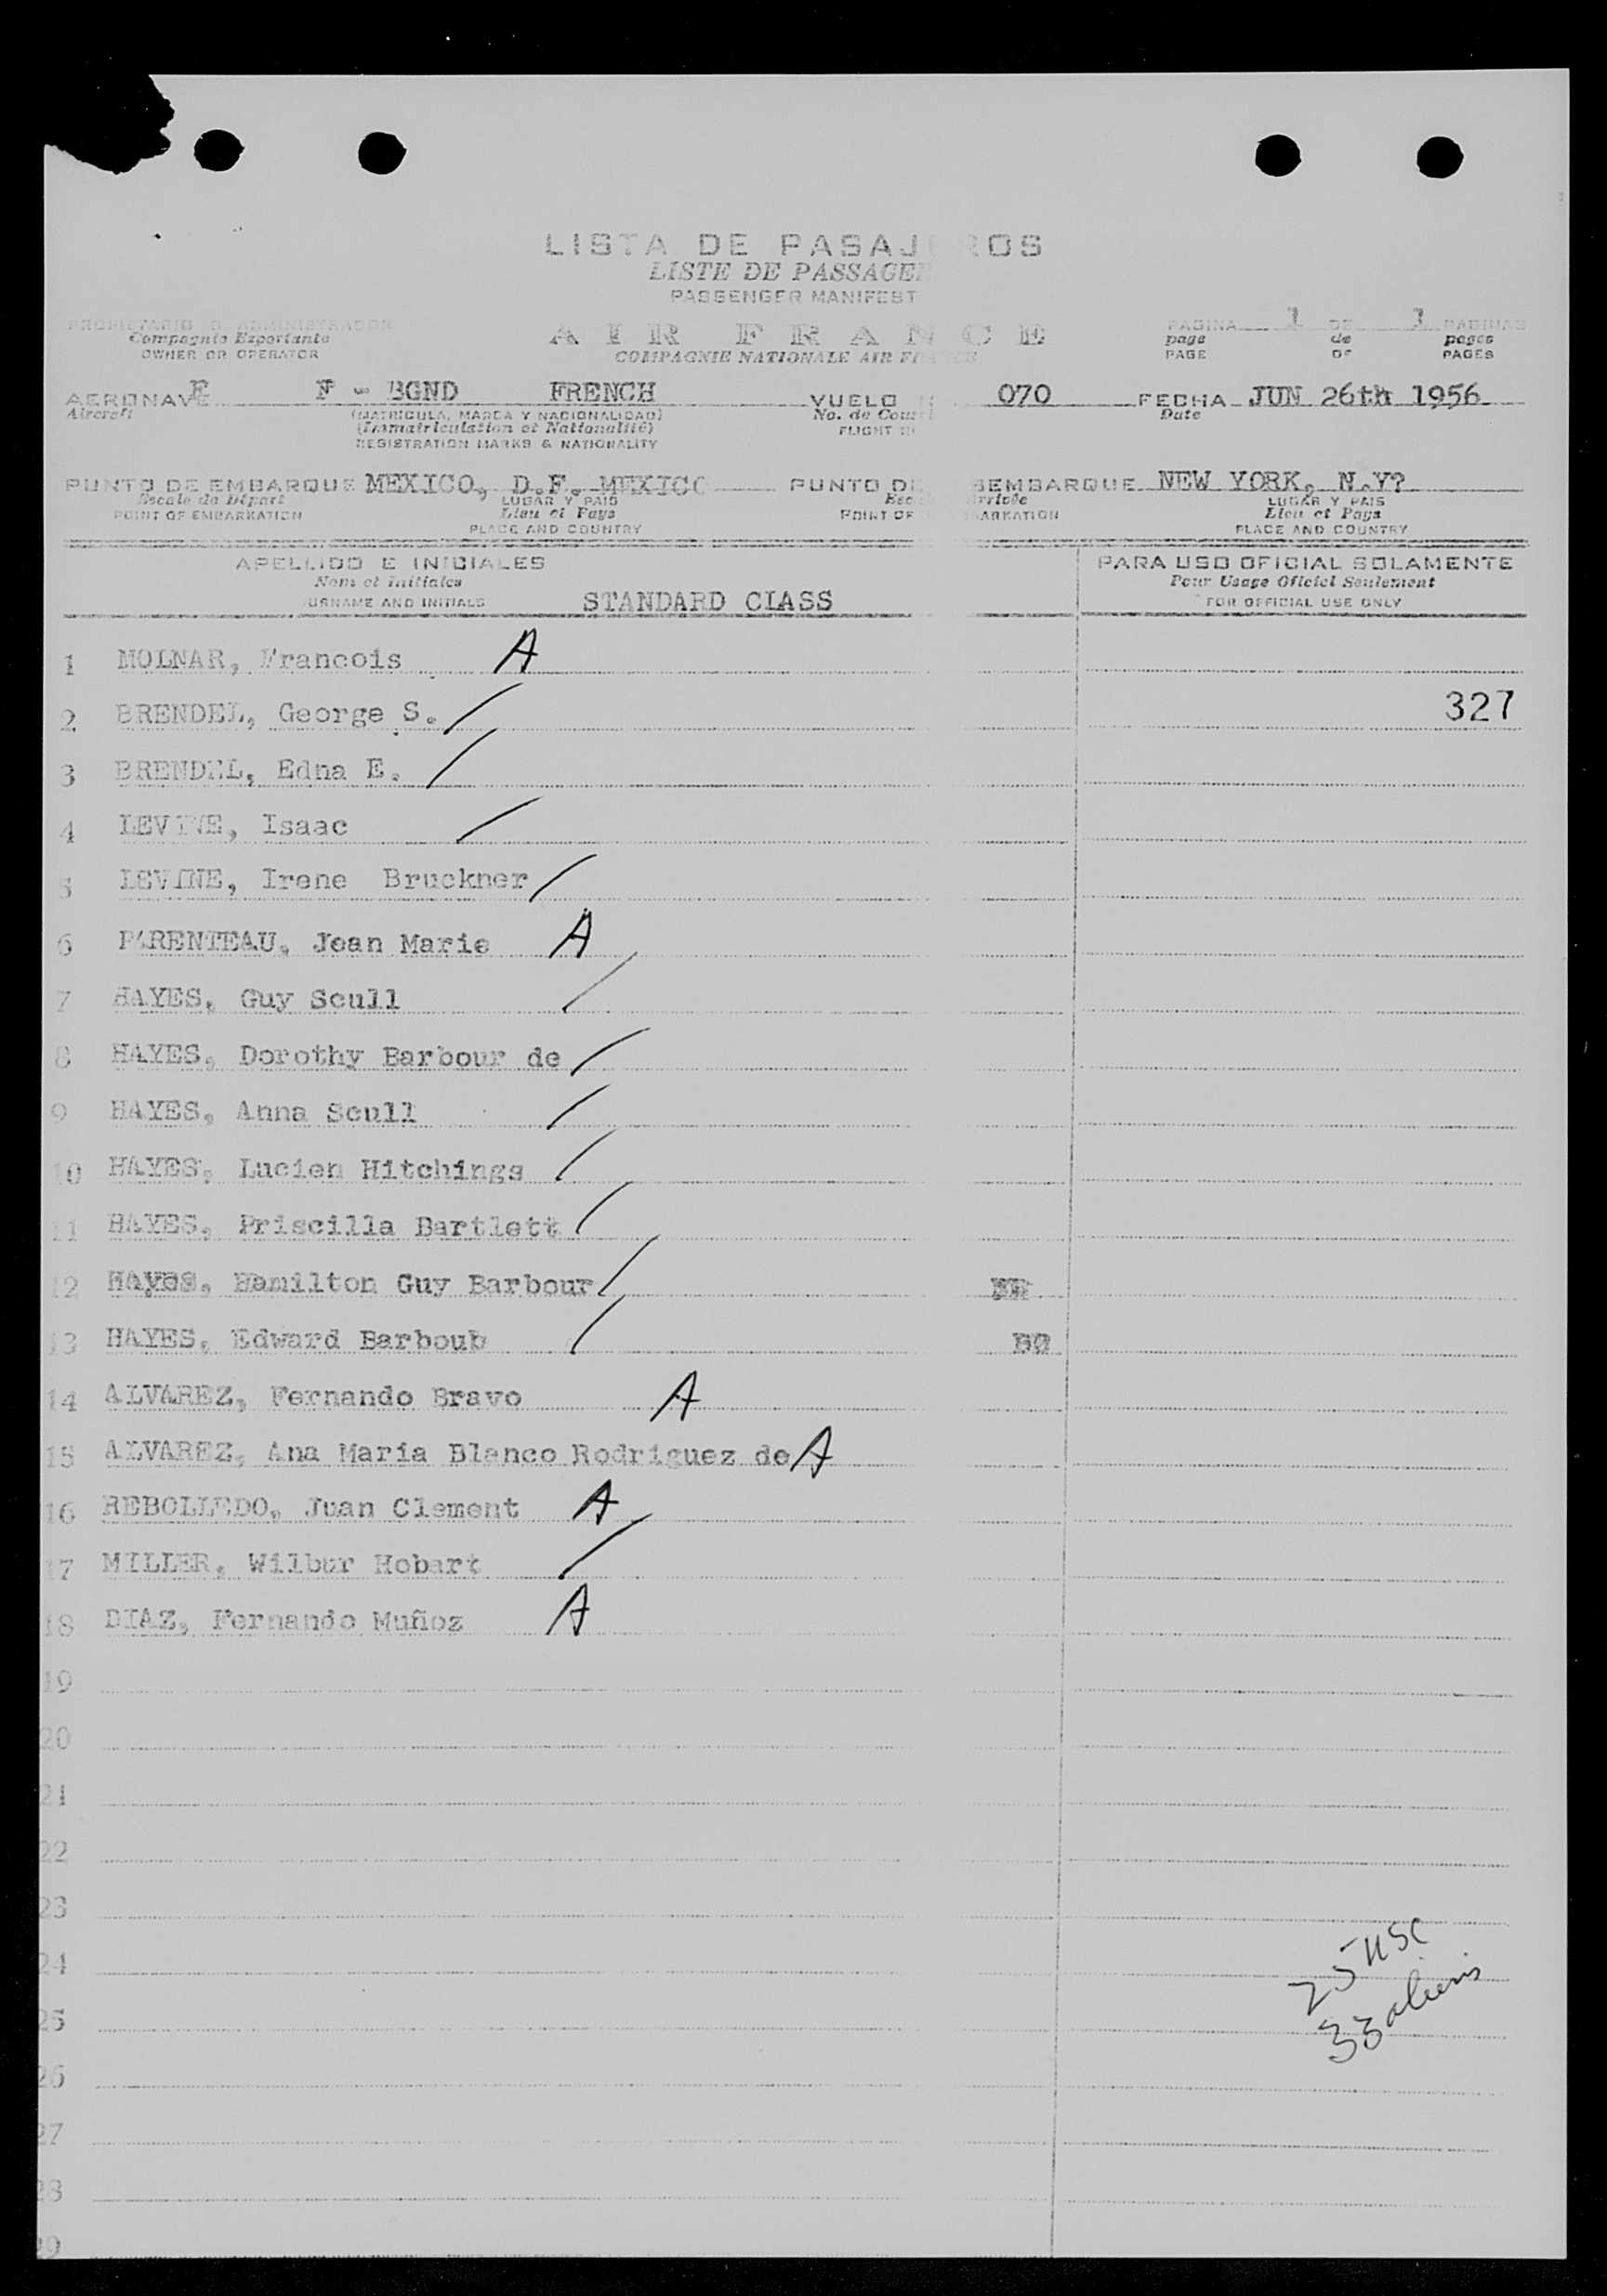 LISTA DE PASAJ ROS
LISTE DE PASSAGE
PASSENGER MANIFEST
PROPIETARIO O ADMINISTRADOR
Compagnie Exportante
OWNER OR OPERATOR
AIR FRANCE
COMPAGNIE NATIONALE AIR F
PAGINA 1 DE 1 PAGINAS
page de pages
PAGE OF PAGES
AERONAVE F - BGND FRENCH VUELO 070 FECHA JUN 26th 1956
Aircraft (MATRICULA, MARCA Y NACIONALIDAD) No. de Cour Date
(Immatriculation et Nationalité) FLIGHT
REGISTRATION MARKS & NATIONALITY
PUNTO DE EMBARQUE MEXICO, D.F. MEXICO PUNTO DE SEMBARQUE NEW YORK, N.Y?
Escale de Départ LUGAR Y PAIS Esc arrivée LUGAR Y PAIS
POINT OF EMBARKATION Lieu et Pays POINT OF ARKATION Lieu et Pays
PLACE AND COUNTRY PLACE AND COUNTRY
APELLIDO E INICIALES PARA USO OFICIAL SOLAMENTE
Nom et Initiales Pour Usage Officiel Seulement
URNAME AND INITIALS STANDARD CLASS FOR OFFICIAL USE ONLY
1 MOLNAR, Francois A
2 BRENDEL, George S. / 327
3 BRENDEL, Edna E. /
4 LEVINE, Isaac /
5 LEVINE, Irene Bruckner /
6 PARENTEAU, Jean Marie A
7 HAYES, Guy Scull /
8 HAYES, Dorothy Barbour de /
9 HAYES, Anna Scull /
10 HAYES, Lucien Hitchings /
11 HAYES, Priscilla Bartlett /
12 HAyes, Hamilton Guy Barbour /
13 HAYES, Edward Barboub /
14 ALVAREZ, Fernando Bravo A
15 ALVAREZ, Ana Maria Blanco Rodriguez de A
16 REBOLLEDO, Juan Clement A
17 MILLER, Wilbur Hobart /
18 DIAZ, Fernando Muñoz A
19
20
21
22
23
24
25
26
27
28
29
25 USC
33 aliens